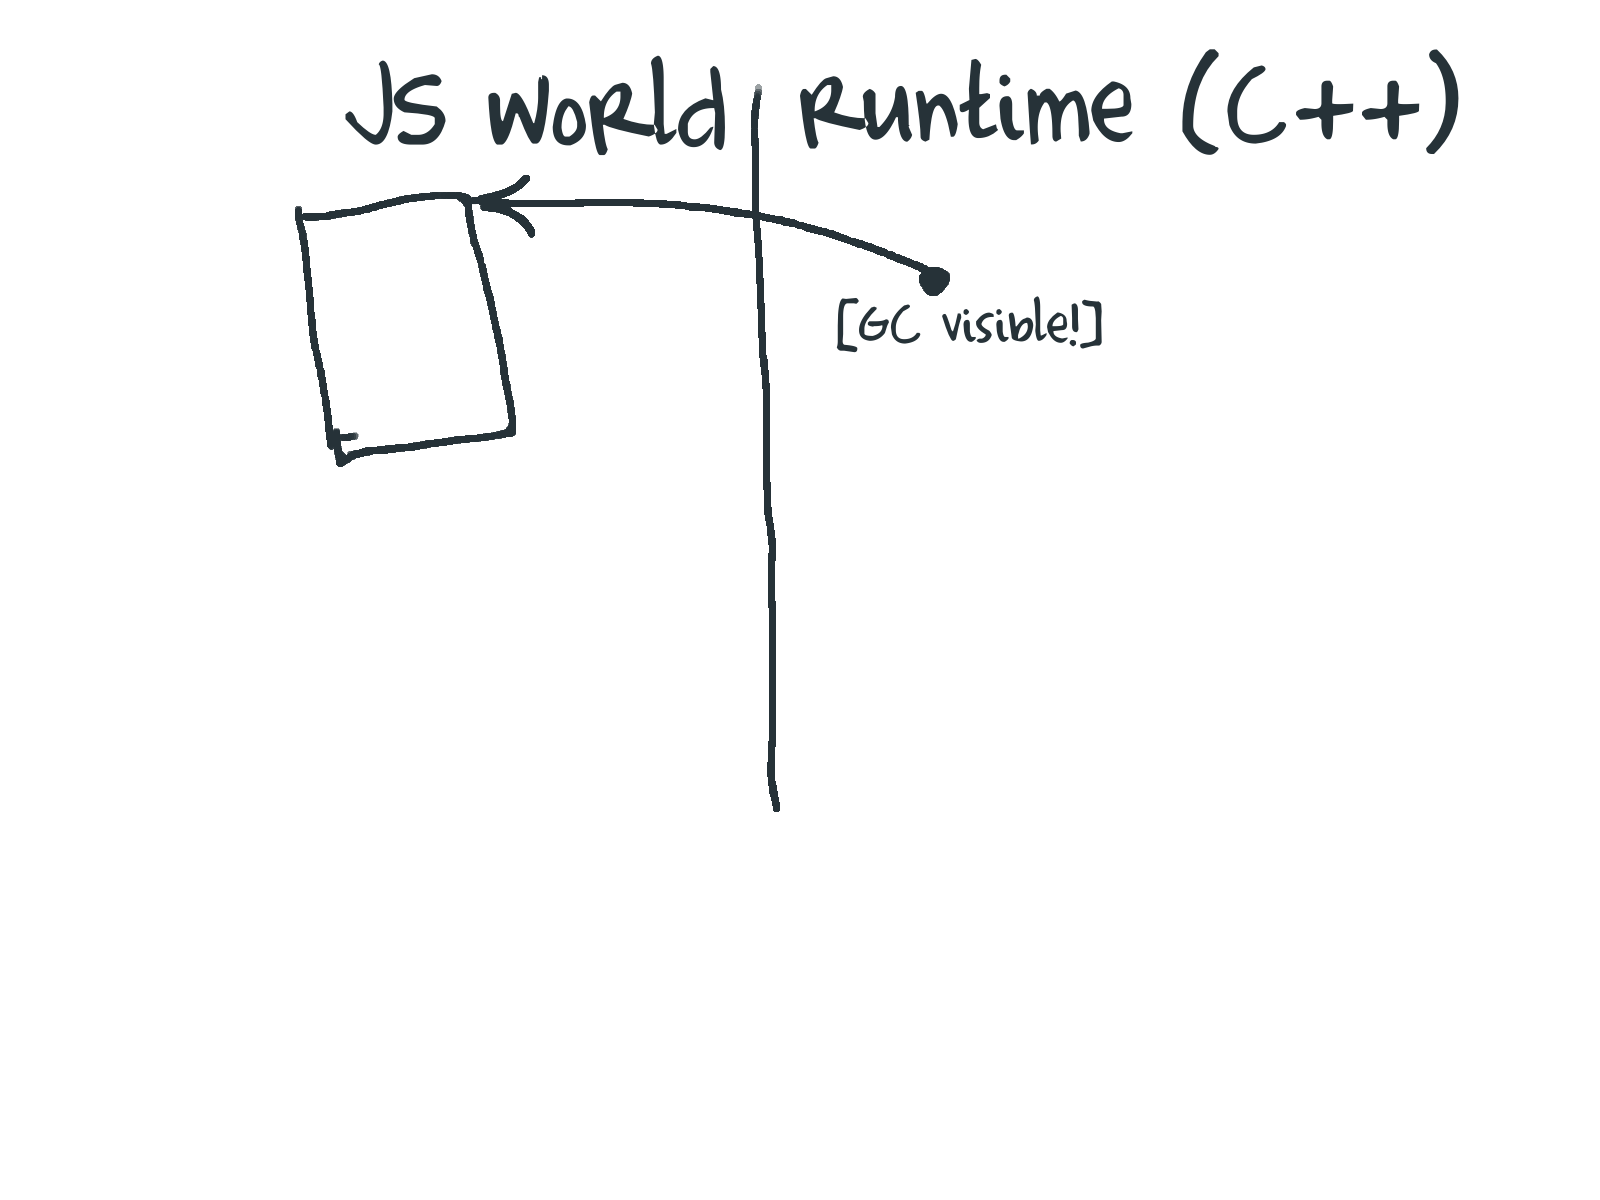 JS world
Runtime (C++)
[GC visible!]